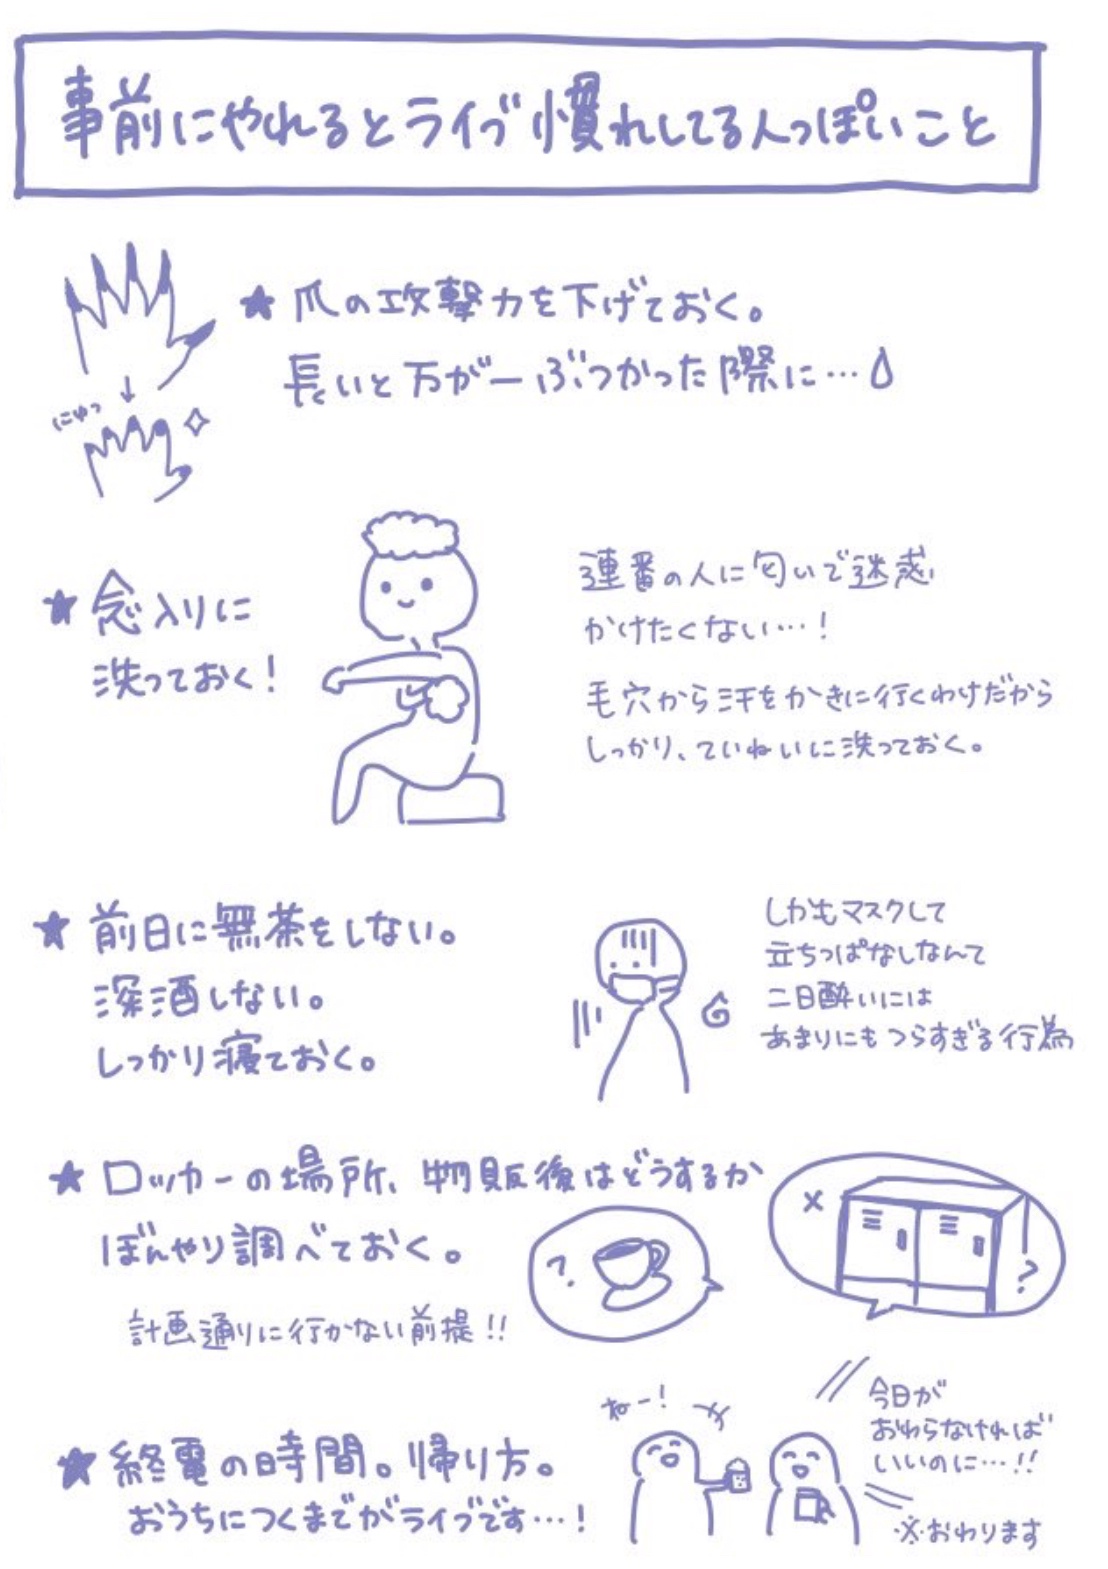 事前にやれるとライブ慣れしてる人っぽいこと
★爪の攻撃力を下げておく。
長いと万が一ぶつかった際に…
↓
にゅっ
★念入りに
洗っておく!
連番の人に匂いで迷惑
かけたくない…!
毛穴から汗をかきに行くわけだから
しっかり、ていねいに洗っておく。
★前日に無茶をしない。
深酒しない。
しっかり寝ておく。
しかもマスクして
立ちっぱなしなんて
二日酔いには
あまりにもつらすぎる行為
★ロッカーの場所、物販後はどうするか
ぼんやり調べておく。
計画通りに行かない前提!!
?
×
?
★終電の時間。帰り方。
おうちにつくまでがライブです…!
ねー!
今日が
おわらなければ
いいのに…!!
※おわります